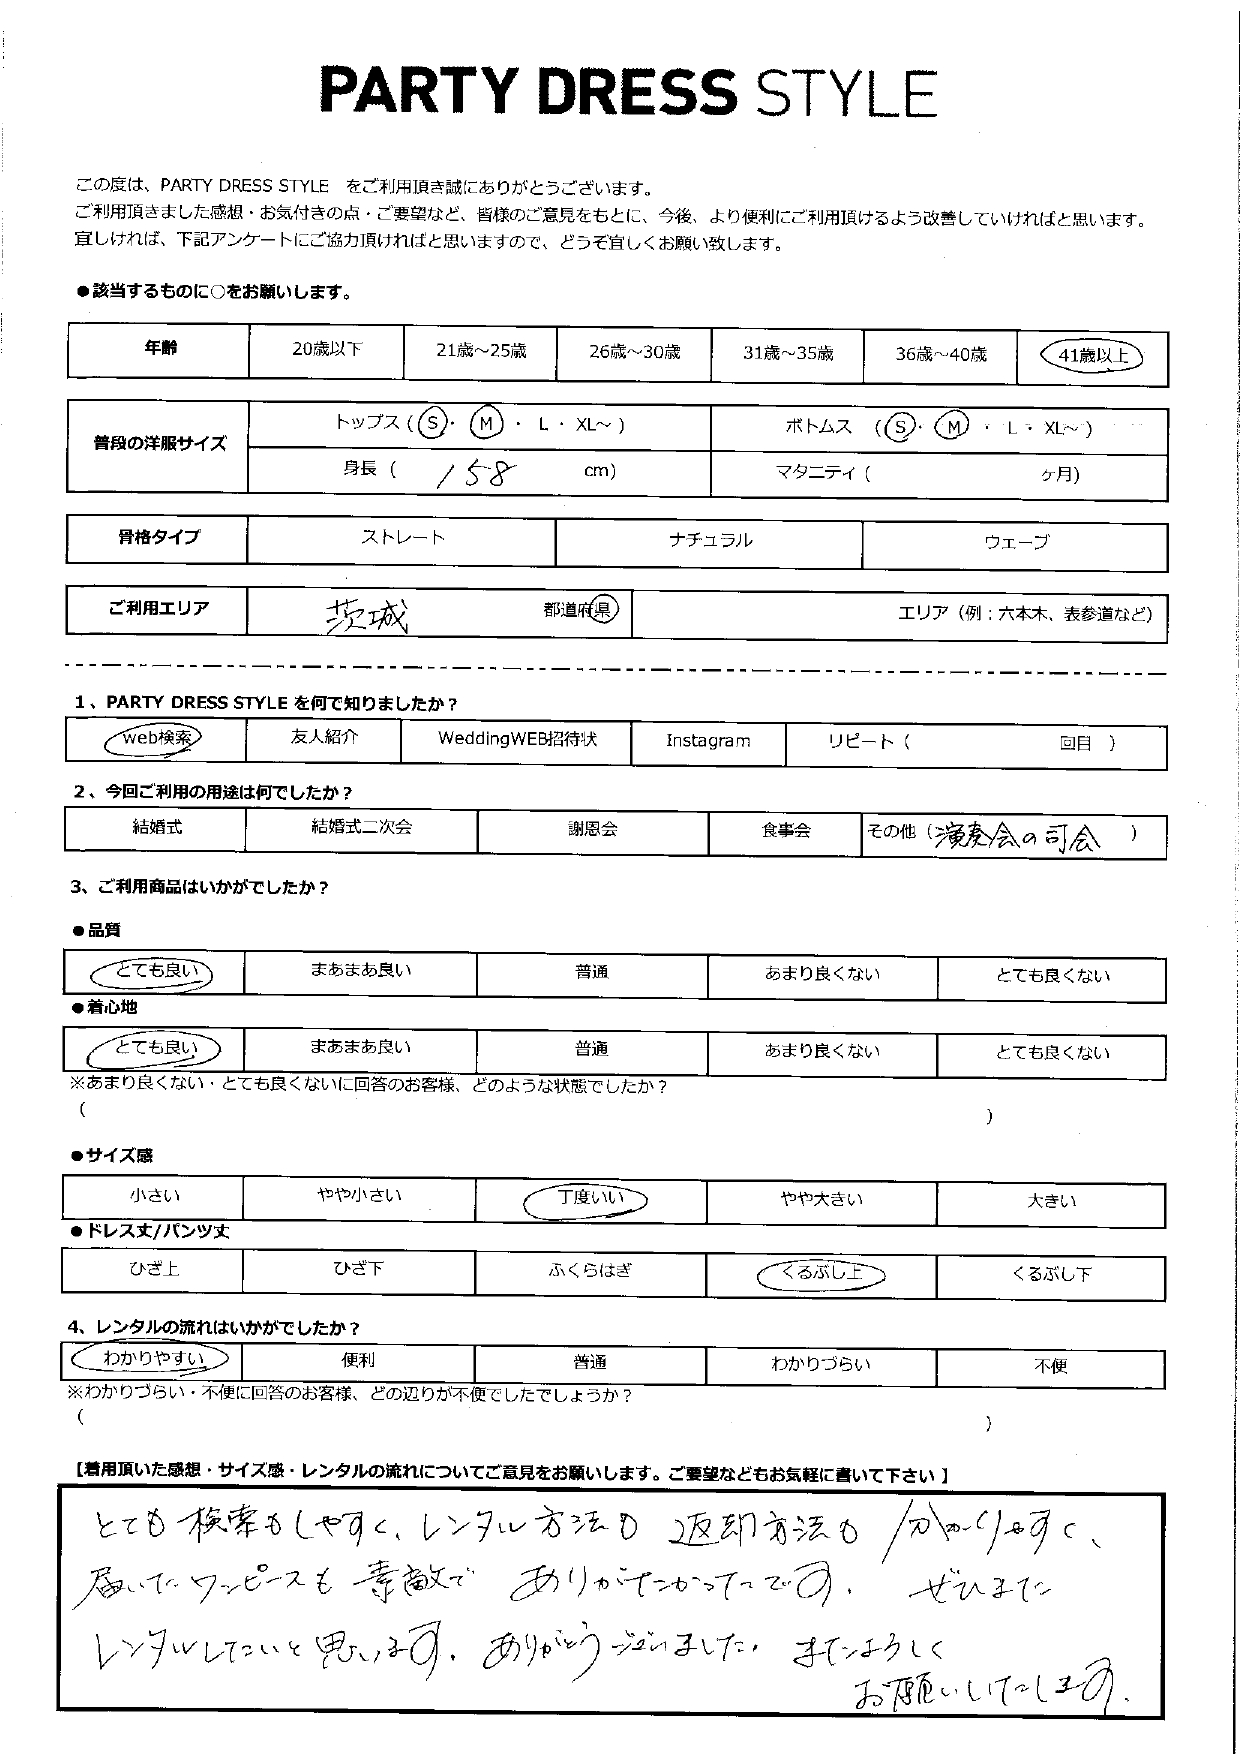 PARTY DRESS STYLE
この度は、PARTY DRESS STYLE をご利用頂き誠にありがとうございます。
ご利用頂きました感想・お気付きの点・ご要望など、皆様のご意見をもとに、今後、より便利にご利用頂けるよう改善していければと思います。
宜しければ、下記アンケートにご協力頂ければと思いますので、どうぞ宜しくお願い致します。
●該当するものに○をお願いします。
年齢 20歳以下 21歳～25歳 26歳～30歳 31歳～35歳 36歳～40歳 41歳以上
普段の洋服サイズ トップス (S・ M ・ L ・ XL～ ) ボトムス (S・ M ・ L ・ XL～ )
身長 ( 158 cm) マタニティ ( ケ月)
骨格タイプ ストレート ナチュラル ウェーブ
ご利用エリア 茨城 都道府県 エリア（例：六本木、表参道など）
1、PARTY DRESS STYLE を何で知りましたか？
web検索 友人紹介 WeddingWEB招待状 Instagram リピート ( 回目 )
2、今回ご利用の用途は何でしたか？
結婚式 結婚式二次会 謝恩会 食事会 その他 (演奏会の司会 )
3、ご利用商品はいかがでしたか？
●品質
とても良い まあまあ良い 普通 あまり良くない とても良くない
●着心地
とても良い まあまあ良い 普通 あまり良くない とても良くない
※あまり良くない・とても良くないに回答のお客様、どのような状態でしたか？
( )
●サイズ感
小さい やや小さい 丁度いい やや大きい 大きい
●ドレス丈/パンツ丈
ひざ上 ひざ下 ふくらはぎ くるぶし上 くるぶし下
4、レンタルの流れはいかがでしたか？
わかりやすい 便利 普通 わかりづらい 不便
※わかりづらい・不便に回答のお客様、どの辺りが不便でしたでしょうか？
( )
【着用頂いた感想・サイズ感・レンタルの流れについてご意見をお願いします。ご要望などもお気軽に書いて下さい 】
とても検索もしやすく、レンタル方法も 返却方法も 分かりやすく、
届いたワンピースも 素敵で ありがたかったです。 ぜひまた
レンタルしたいと思います。ありがとうございました。 またよろしく
お願いいたします。